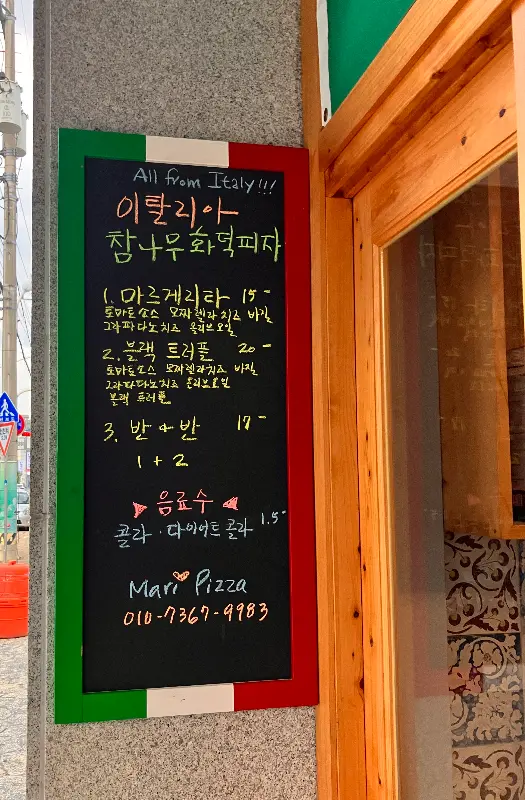 All from Italy!!!
이탈리아
참나무화덕피자
1. 마르게리타 15-
토마토소스 모짜렐라치즈 바질
그라파다노치즈 올리브오일
2. 블랙 트러플 20-
토마토소스 모짜렐라치즈 바질
그라파다노치즈 올리브오일
블랙 트러플
3. 반 + 반 17-
1 + 2
음료수
콜라 · 다이어트 콜라 1.5-
Mari Pizza
010-7367-9983